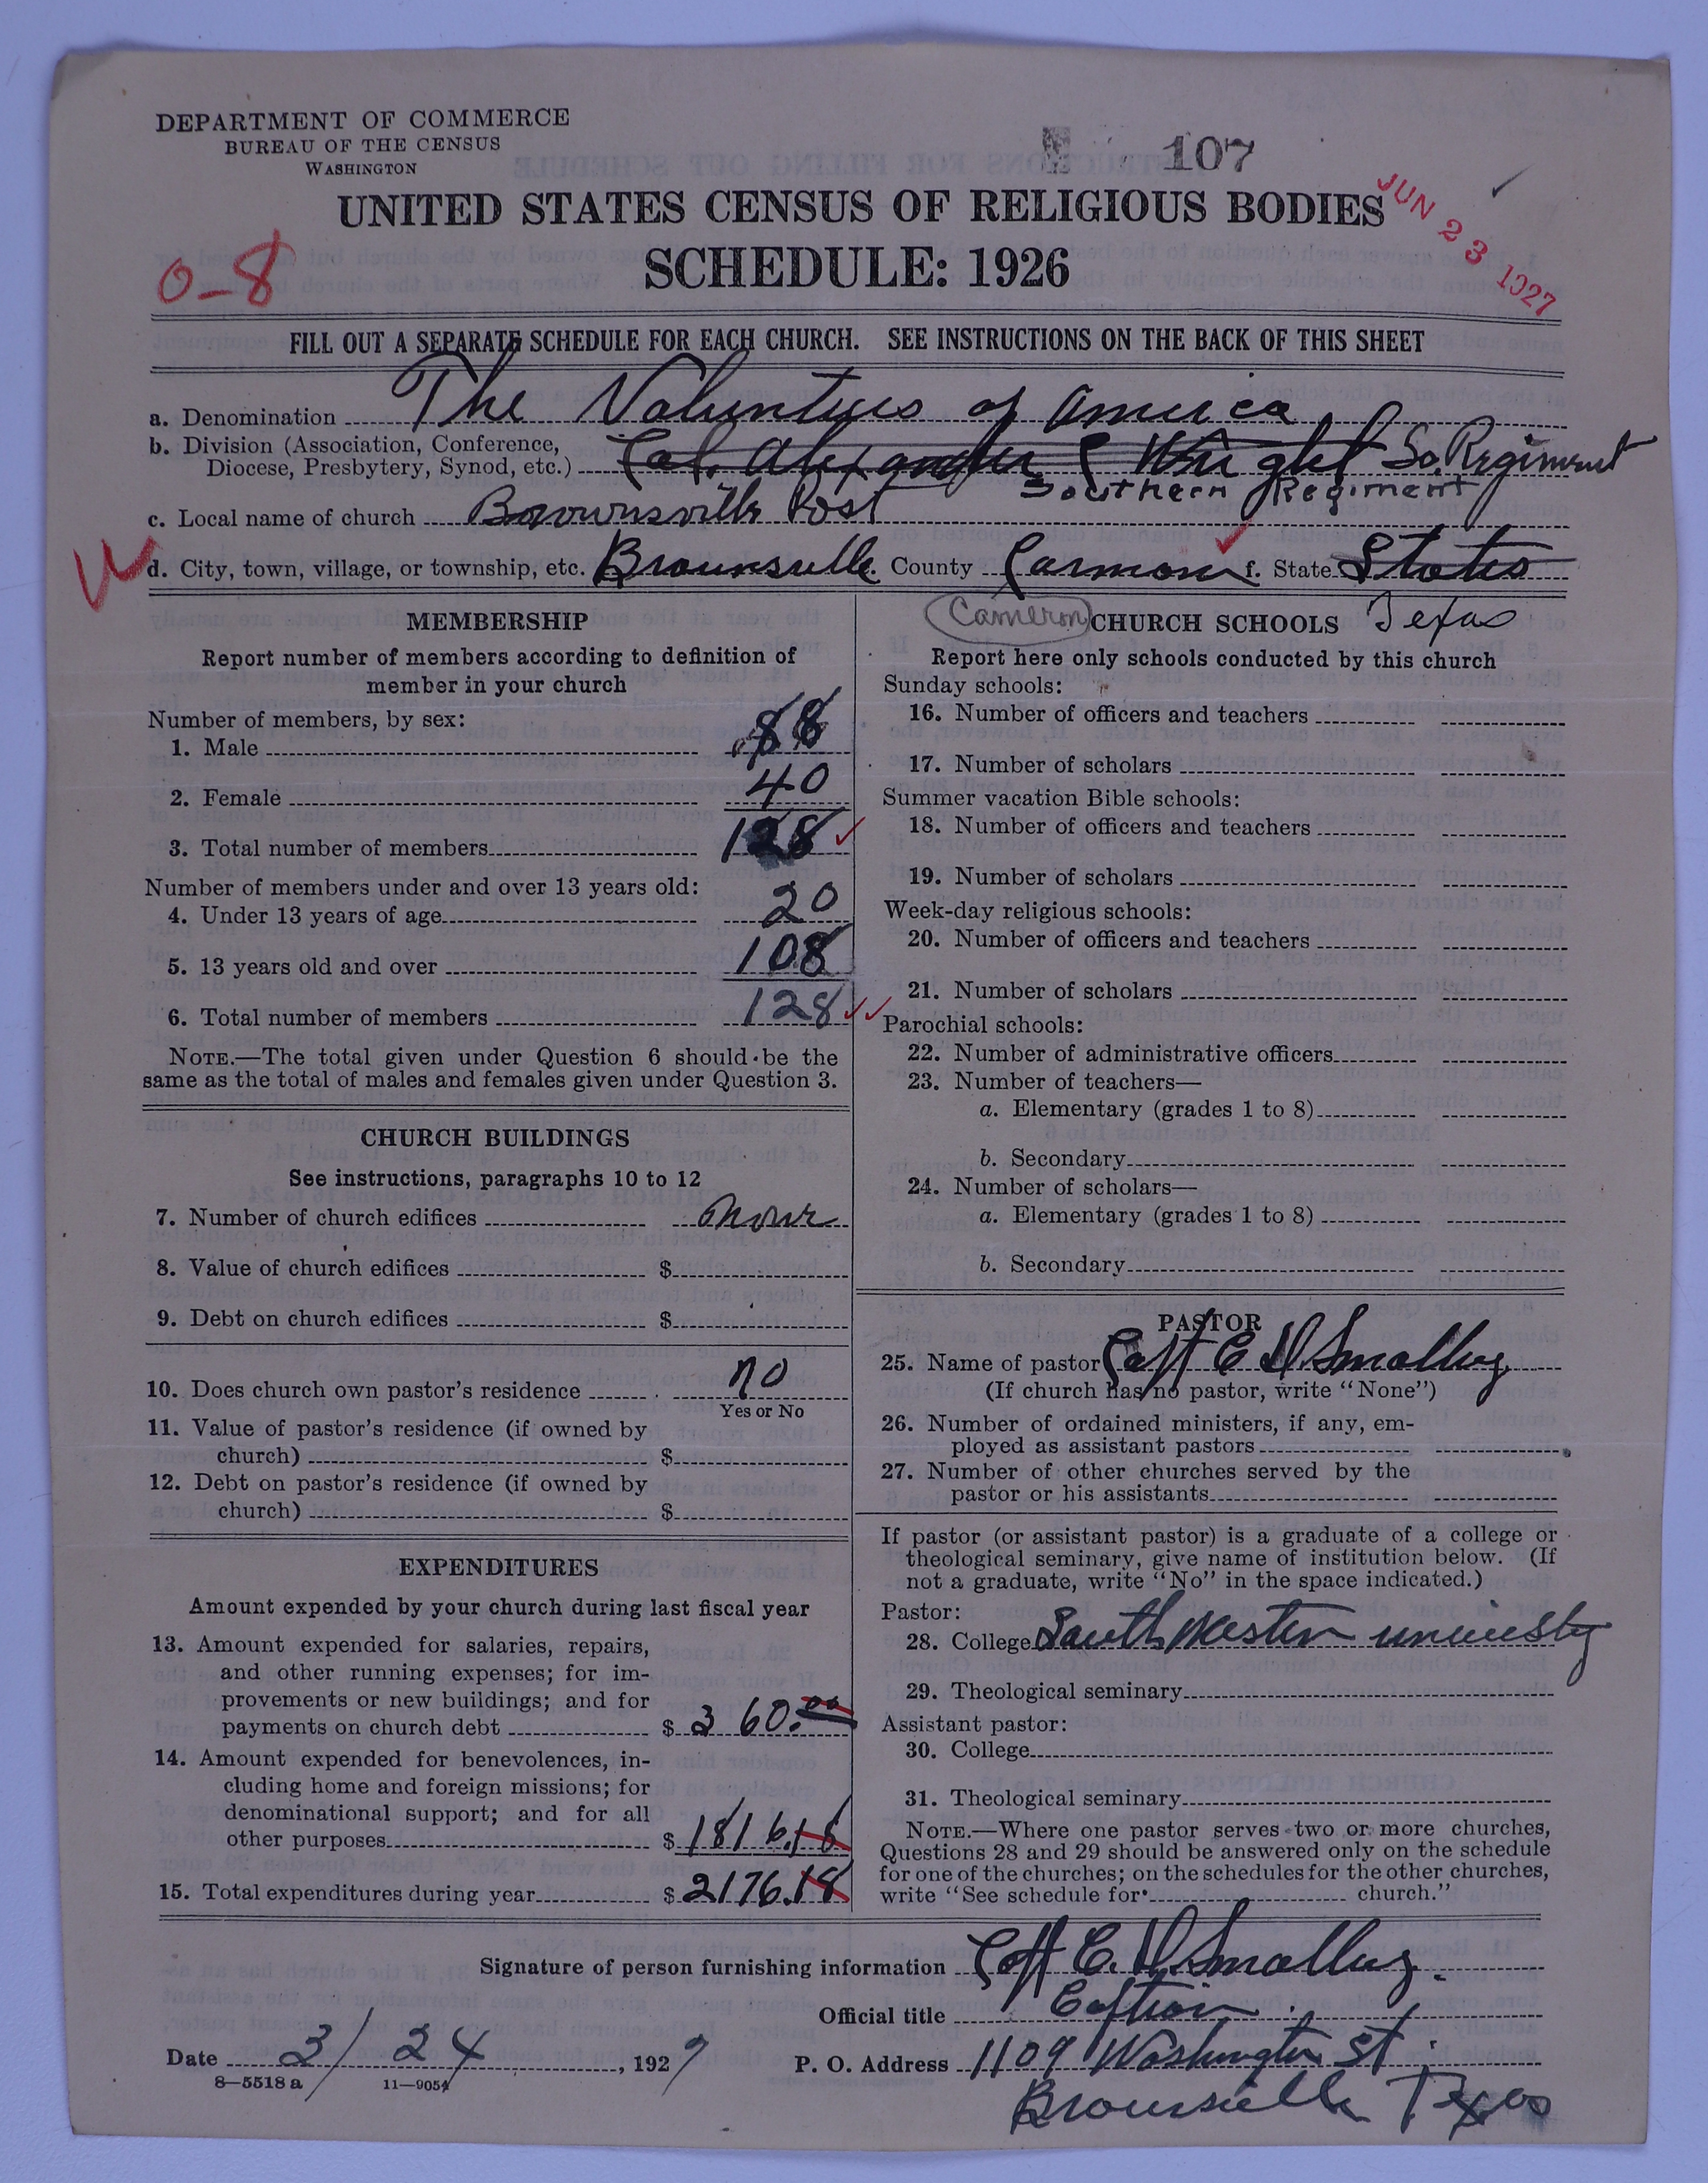 DEPARTMENT OF COMMERCE
BUREAU OF THE CENSUS
WASHINGTON
107
JUN 23 1927
UNITED STATES CENSUS OF RELIGIOUS BODIES
SCHEDULE: 1926
0-8
FILL OUT A SEPARATE SCHEDULE FOR EACH CHURCH. SEE INSTRUCTIONS ON THE BACK OF THIS SHEET
a. Denomination The Volunteers of America
b. Division (Association, Conference,
Diocese, Presbytery, Synod, etc.) Col. Alexander C Wright So. Regiment
Southern Regiment
c. Local name of church Brownsville Post
d. City, town, village, or township, etc. Brownsville County f. State States
Cameron Texas
MEMBERSHIP
Report number of members according to definition of
member in your church
Number of members, by sex:
1. Male 88
2. Female 40
3. Total number of members 128
Number of members under and over 13 years old:
4. Under 13 years of age 20
5. 13 years old and over 108
6. Total number of members 128
NOTE.—The total given under Question 6 should be the
same as the total of males and females given under Question 3.
CHURCH BUILDINGS
See instructions, paragraphs 10 to 12
7. Number of church edifices none
8. Value of church edifices $
9. Debt on church edifices $
10. Does church own pastor's residence no
Yes or No
11. Value of pastor's residence (if owned by
church) $
12. Debt on pastor's residence (if owned by
church) $
EXPENDITURES
Amount expended by your church during last fiscal year
13. Amount expended for salaries, repairs,
and other running expenses; for im-
provements or new buildings; and for
payments on church debt $ 360.00
14. Amount expended for benevolences, in-
cluding home and foreign missions; for
denominational support; and for all
other purposes $ 1816.18
15. Total expenditures during year $ 2176.18
CHURCH SCHOOLS
Report here only schools conducted by this church
Sunday schools:
16. Number of officers and teachers
17. Number of scholars
Summer vacation Bible schools:
18. Number of officers and teachers
19. Number of scholars
Week-day religious schools:
20. Number of officers and teachers
21. Number of scholars
Parochial schools:
22. Number of administrative officers
23. Number of teachers—
a. Elementary (grades 1 to 8)
b. Secondary
24. Number of scholars—
a. Elementary (grades 1 to 8)
b. Secondary
PASTOR
25. Name of pastor Capt C D. Smalley
(If church has no pastor, write "None")
26. Number of ordained ministers, if any, em-
ployed as assistant pastors
27. Number of other churches served by the
pastor or his assistants
If pastor (or assistant pastor) is a graduate of a college or
theological seminary, give name of institution below. (If
not a graduate, write "No" in the space indicated.)
Pastor:
28. College South Western
29. Theological seminary
Assistant pastor:
30. College
31. Theological seminary
NOTE.—Where one pastor serves two or more churches,
Questions 28 and 29 should be answered only on the schedule
for one of the churches; on the schedules for the other churches,
write "See schedule for church."
Signature of person furnishing information Capt C. D. Smalley.
Official title
Date 3/24, 1927
P. O. Address 1109 Washington St
Brownsville Texas
8—5518 a 11—9054